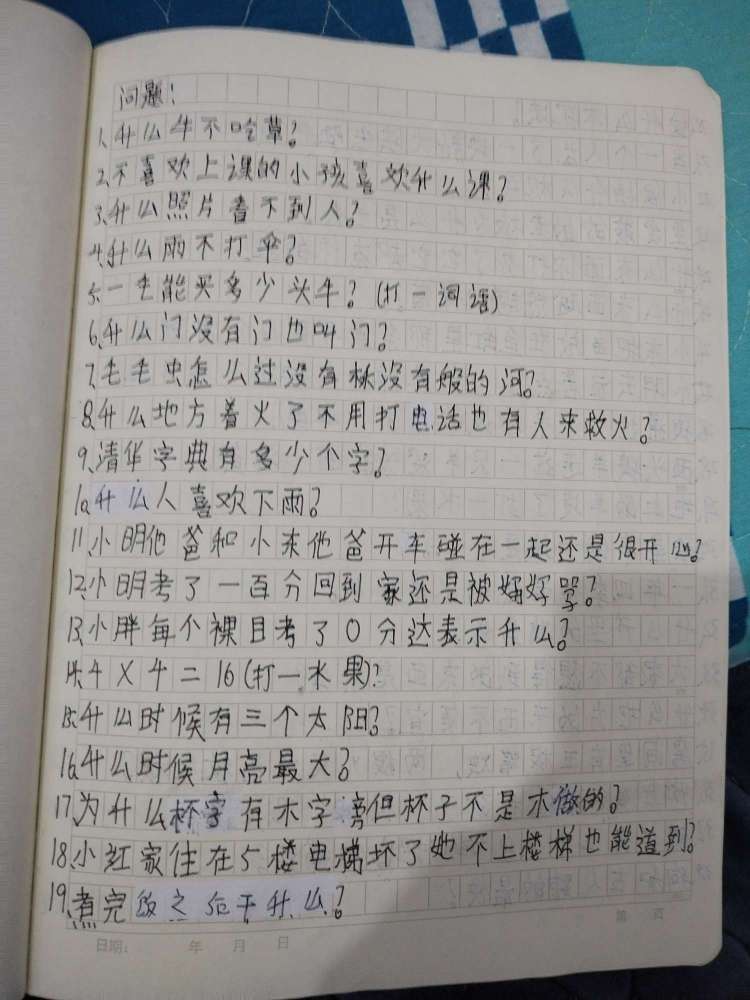 问题!
1.什么牛不吃草?
2.不喜欢上课的小孩喜欢什么课?
3.什么照片看不到人?
4.什么雨不打伞?
5.一毛能买多少头牛?(打一词语)
6.什么门没有门也叫门?
7.毛毛虫怎么过没有桥没有船的河?
8.什么地方着火了不用打电话也有人来救火?
9.清华字典有多少个字?
10.什么人喜欢下雨?
11.小明他爸和小东他爸开车碰在一起还是很开心?
12.小明考了一百分回到家还是被妈妈骂?
13.小胖每个课目考了0分这表示什么?
14.4×4=16(打一水果)?
15.什么时候有三个太阳?
16.什么时候月亮最大?
17.为什么杯字有木字旁但杯子不是木做的?
18.小红家住在5楼电梯坏了她不上楼梯也能道到?
19.煮完饭之后干什么?
日期: 年 月 日
第 页